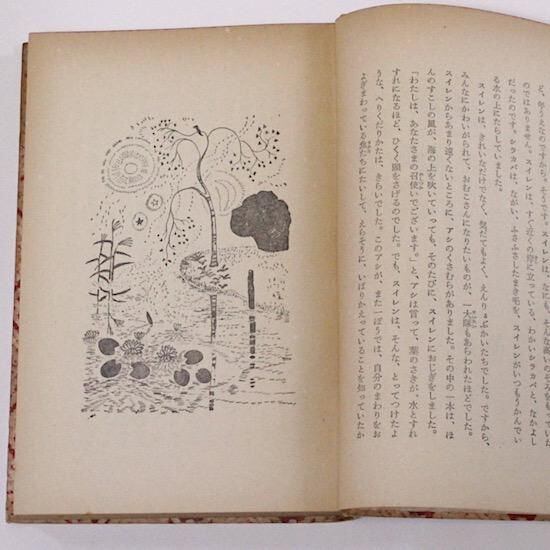 ど、年うえなのですから。そうです、スイレンは、なにも
のではありません。スイレンは、すぐ近くの岸に立っている、わかいシラカバと、なかよし
だったのです。シラカバは、ながい、ふさふさしたまき毛を、スイレンがいつもうかんでい
る水の上にたらしていました。
スイレンは、きれいなだけでなく、気だてもよく、えんりょぶかいたちでした。ですから、
みんなにかわいがられて、おむこさんになりたいものが、一大隊もあらわれたほどでした。
スイレンからあまり遠くないところに、アシのくさむらがありました。その中の一本は、ほ
んのすこしの風が、海の上を吹いていっても、そのたびに、スイレンにおじぎをしました。
「わたしは、あなたさまの召使いでございます。」と、アシは言って、葉のさきが、水とすれ
すれになるほど、ひくく頭をさげるのでした。でも、スイレンは、そんな、とってつけたよ
うな、へりくだりかたは、きらいでした。このアシが、また一ぽうでは、自分のまわりをお
よぎまわっている魚たちにたいして、えらそうに、いばりかえっていることを知っていたか